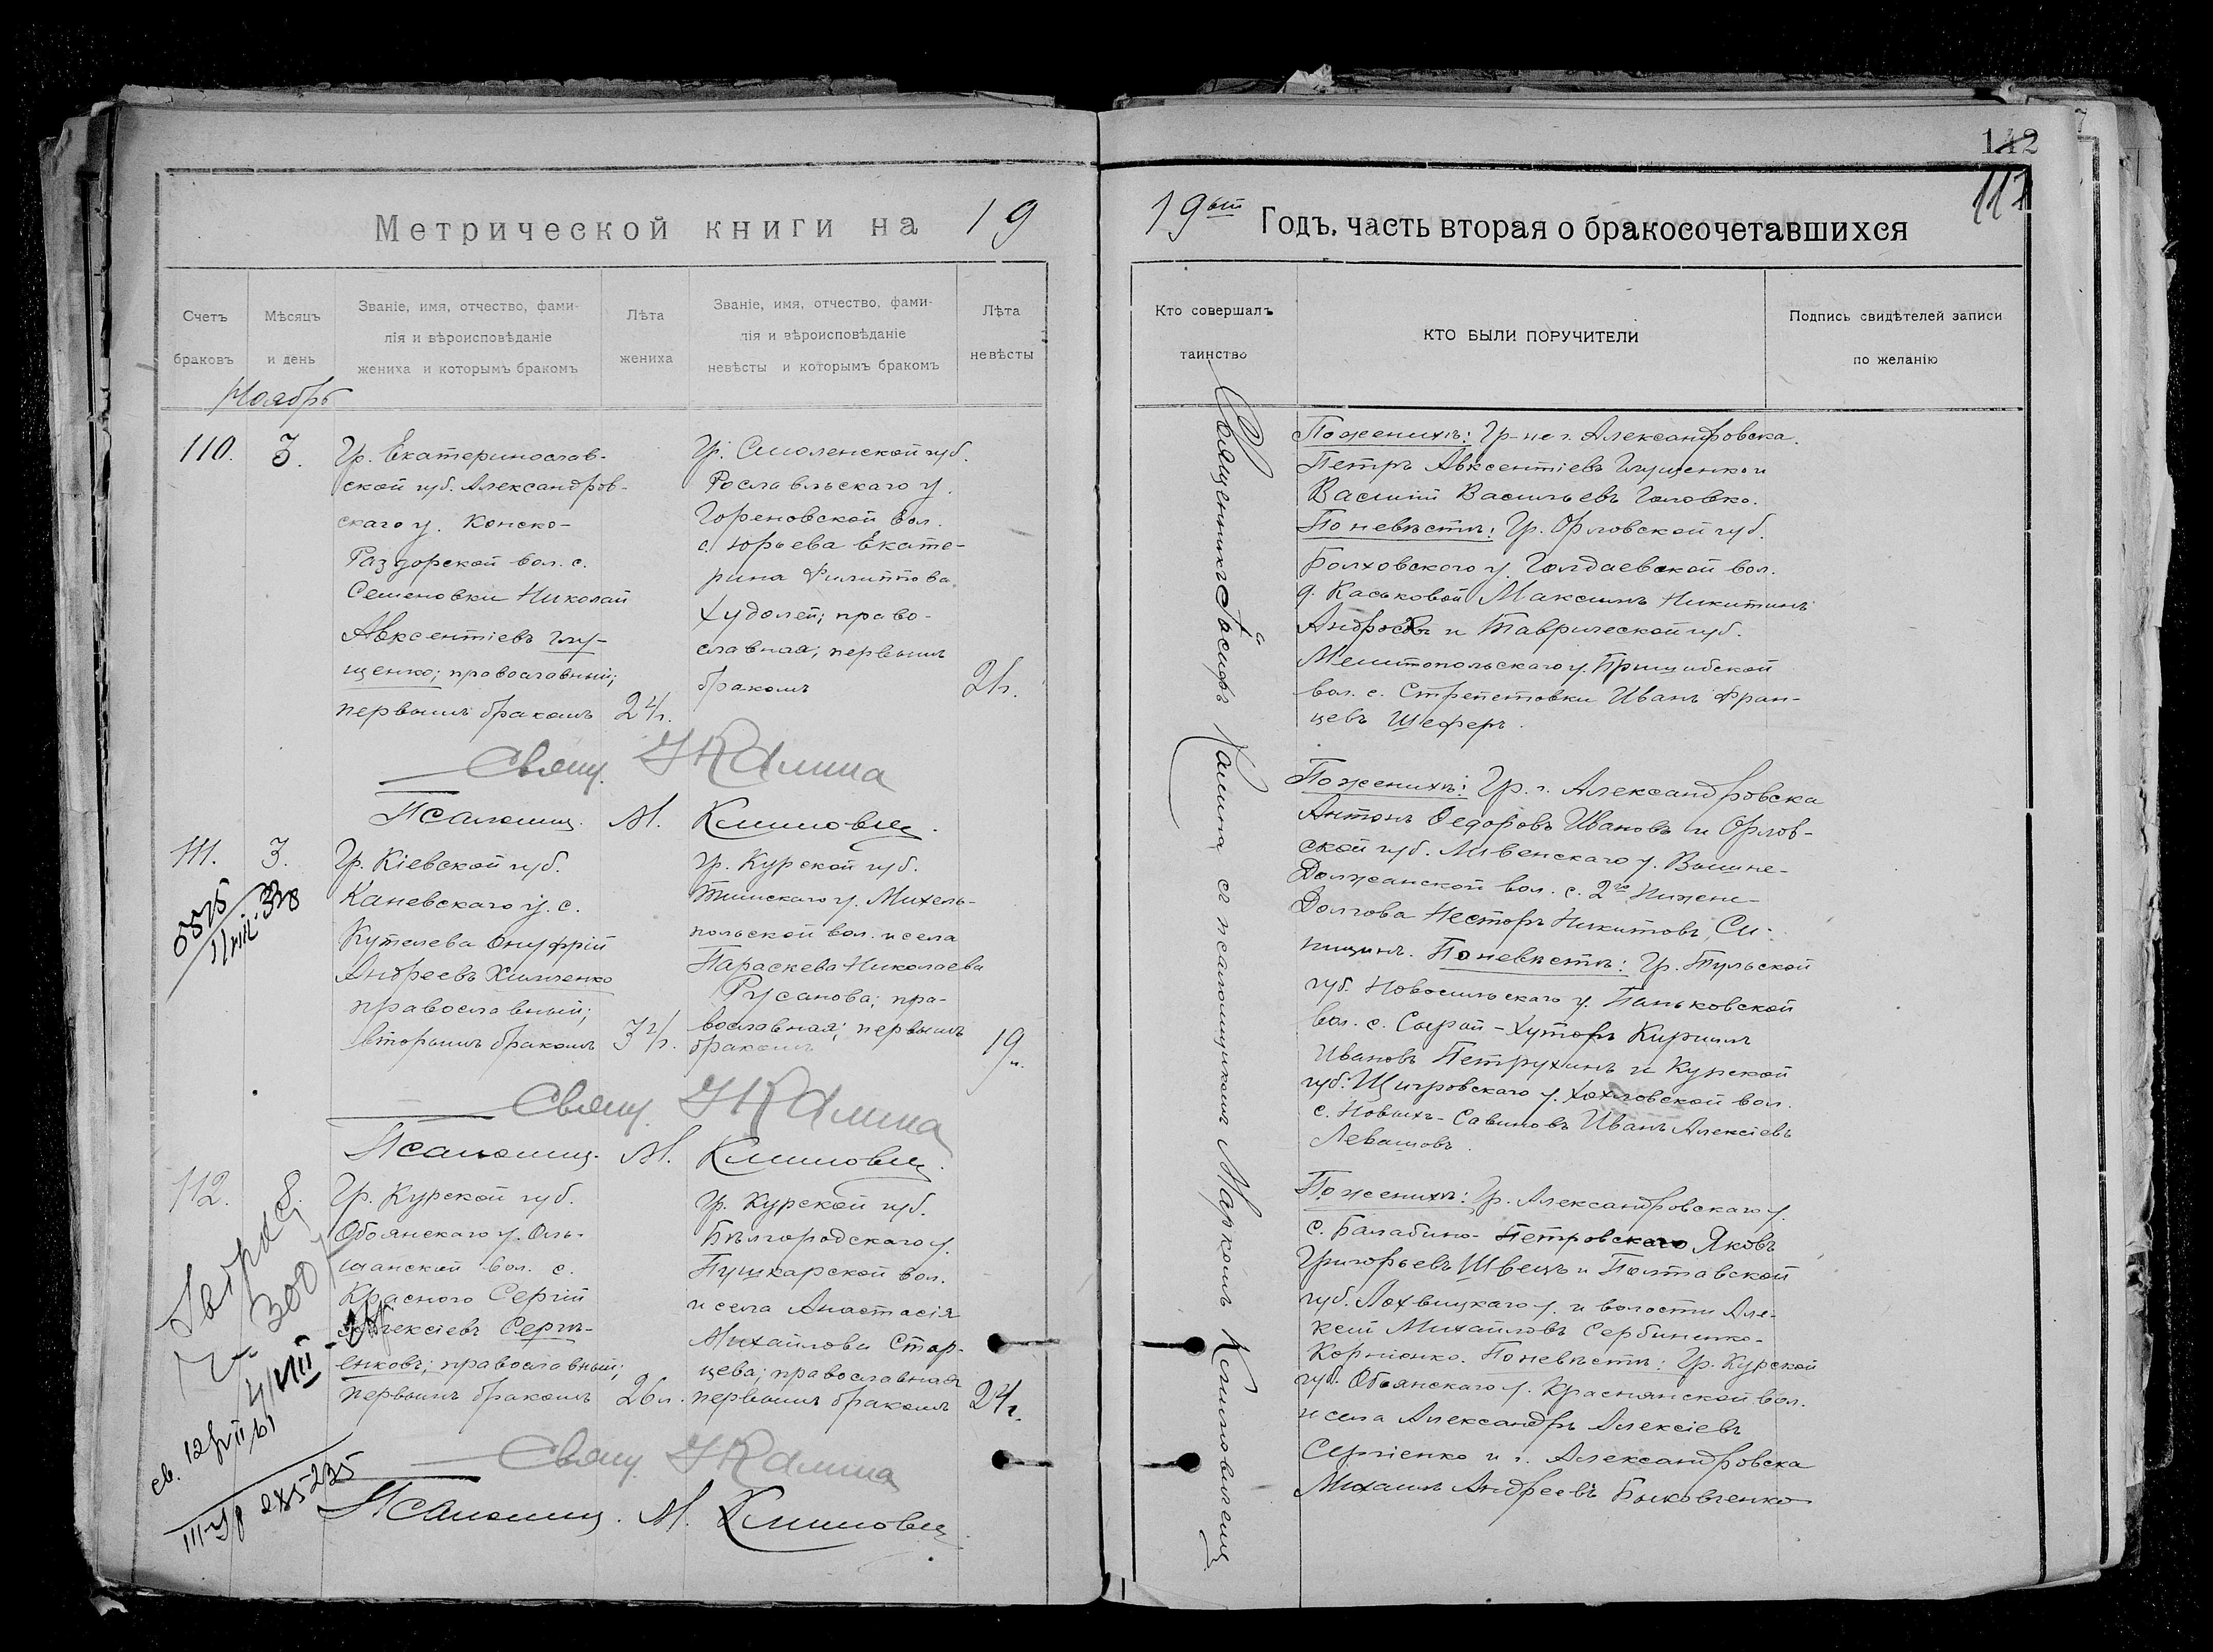 Метрической книги на 19
Счетъ
браковъ
Мѣсяцъ
и день
Званіе, имя, отчество, фами-
лія и вѣроисповѣданіе
жениха и которымъ бракомъ
Лѣта
жениха
Званіе, имя, отчество, фами-
лія и вѣроисповѣданіе
невѣсты и которымъ бракомъ
Лѣта
невѣсты
Ноябрь
110.
3.
Гр. Екатеринослав-
ской губ. Александров-
скаго у. Конско-
Раздорской вол. с.
Семеновки Николай
Авксентіевъ Глу-
щенко; православный;
первымъ бракомъ
24 г.
Гр. Смоленской губ.
Рославльскаго у.
Гореновской вол.
с. Юрьева Екате-
рина Филиппова
Худолей; право-
славная; первымъ
бракомъ
21 г.
Свящ. І Калина
Псаломщ. М. Климовец.
111.
3.
Гр. Кіевской губ.
Каневскаго у. с.
Кутелева Онуфрій
Андреевъ Химченко
православный;
вторымъ бракомъ
Гр. Курской губ.
Тимскаго у. Михель-
польской вол. и села
Параскева Николаева
Русанова; пра-
вославная; первымъ
бракомъ
19 л.
Свящ. І Калина
Псаломщ. М. Климовец.
112.
8.
Гр. Курской губ.
Обоянскаго у. Оль-
шанской вол. с.
Красного Сергій
Алексіевъ Сергі-
енковъ; православный;
первымъ бракомъ
26 л.
Гр. Курской губ.
Бѣлгородскаго у.
Пушкарской вол.
и села Анастасія
Михайлова Стар-
цева; православная
первымъ бракомъ
24 г.
Свящ. І Калина
Псаломщ. М. Климовец.
142
117
19ый Годъ, часть вторая о бракосочетавшихся
Кто совершалъ
таинство
КТО БЫЛИ ПОРУЧИТЕЛИ
Подпись свидѣтелей записи
по желанію
Священникъ Іосифъ Калина съ псаломщикомъ Маркомъ Климовцемъ
По женихѣ: Гр-не г. Александровска
Петръ Авксентіевъ Глущенко и
Василій Васильевъ Головко.
По невѣстѣ: Гр. Орловской губ.
Болховского у. Голдаевской вол.
д. Каськовой Максимъ Никитинъ
и Таврической губ.
Мелитопольскаго у. Пришибской
вол. с. Стрепетовки Иванъ Фран-
цевъ Шеферъ.
По женихѣ: Гр. г. Александровска
Антонъ Федоровъ Ивановъ и Орлов-
ской губ. Ливенскаго у. Вышне-
Должанской вол. с. 2го Нижне-
Долгова Несторъ Никитовъ Си-
ницинъ. По невѣстѣ: Гр. Тульской
губ. Новосильскаго у. Паньковской
вол. с. Сырой-Хуторъ Кириллъ
Ивановъ Петрухинъ и Курской
губ. Щигровскаго у. Хохловской вол.
с. Новыхъ-Савиновъ Иванъ Алексіевъ
Левашовъ.
По женихѣ: Гр. Александровскаго у.
с. Балабино-Петровскаго Яковъ
Григорьевъ Швецъ и Полтавской
губ. Лохвицкаго у. и волости Але-
ксій Михайловъ Сербиненко-
Корніенко. По невѣстѣ: Гр. Курской
губ. Обоянскаго у. Краснянской вол.
и села Александръ Алексіевъ
Сергіенко и г. Александровска
Михаилъ Андреевъ Быковченко